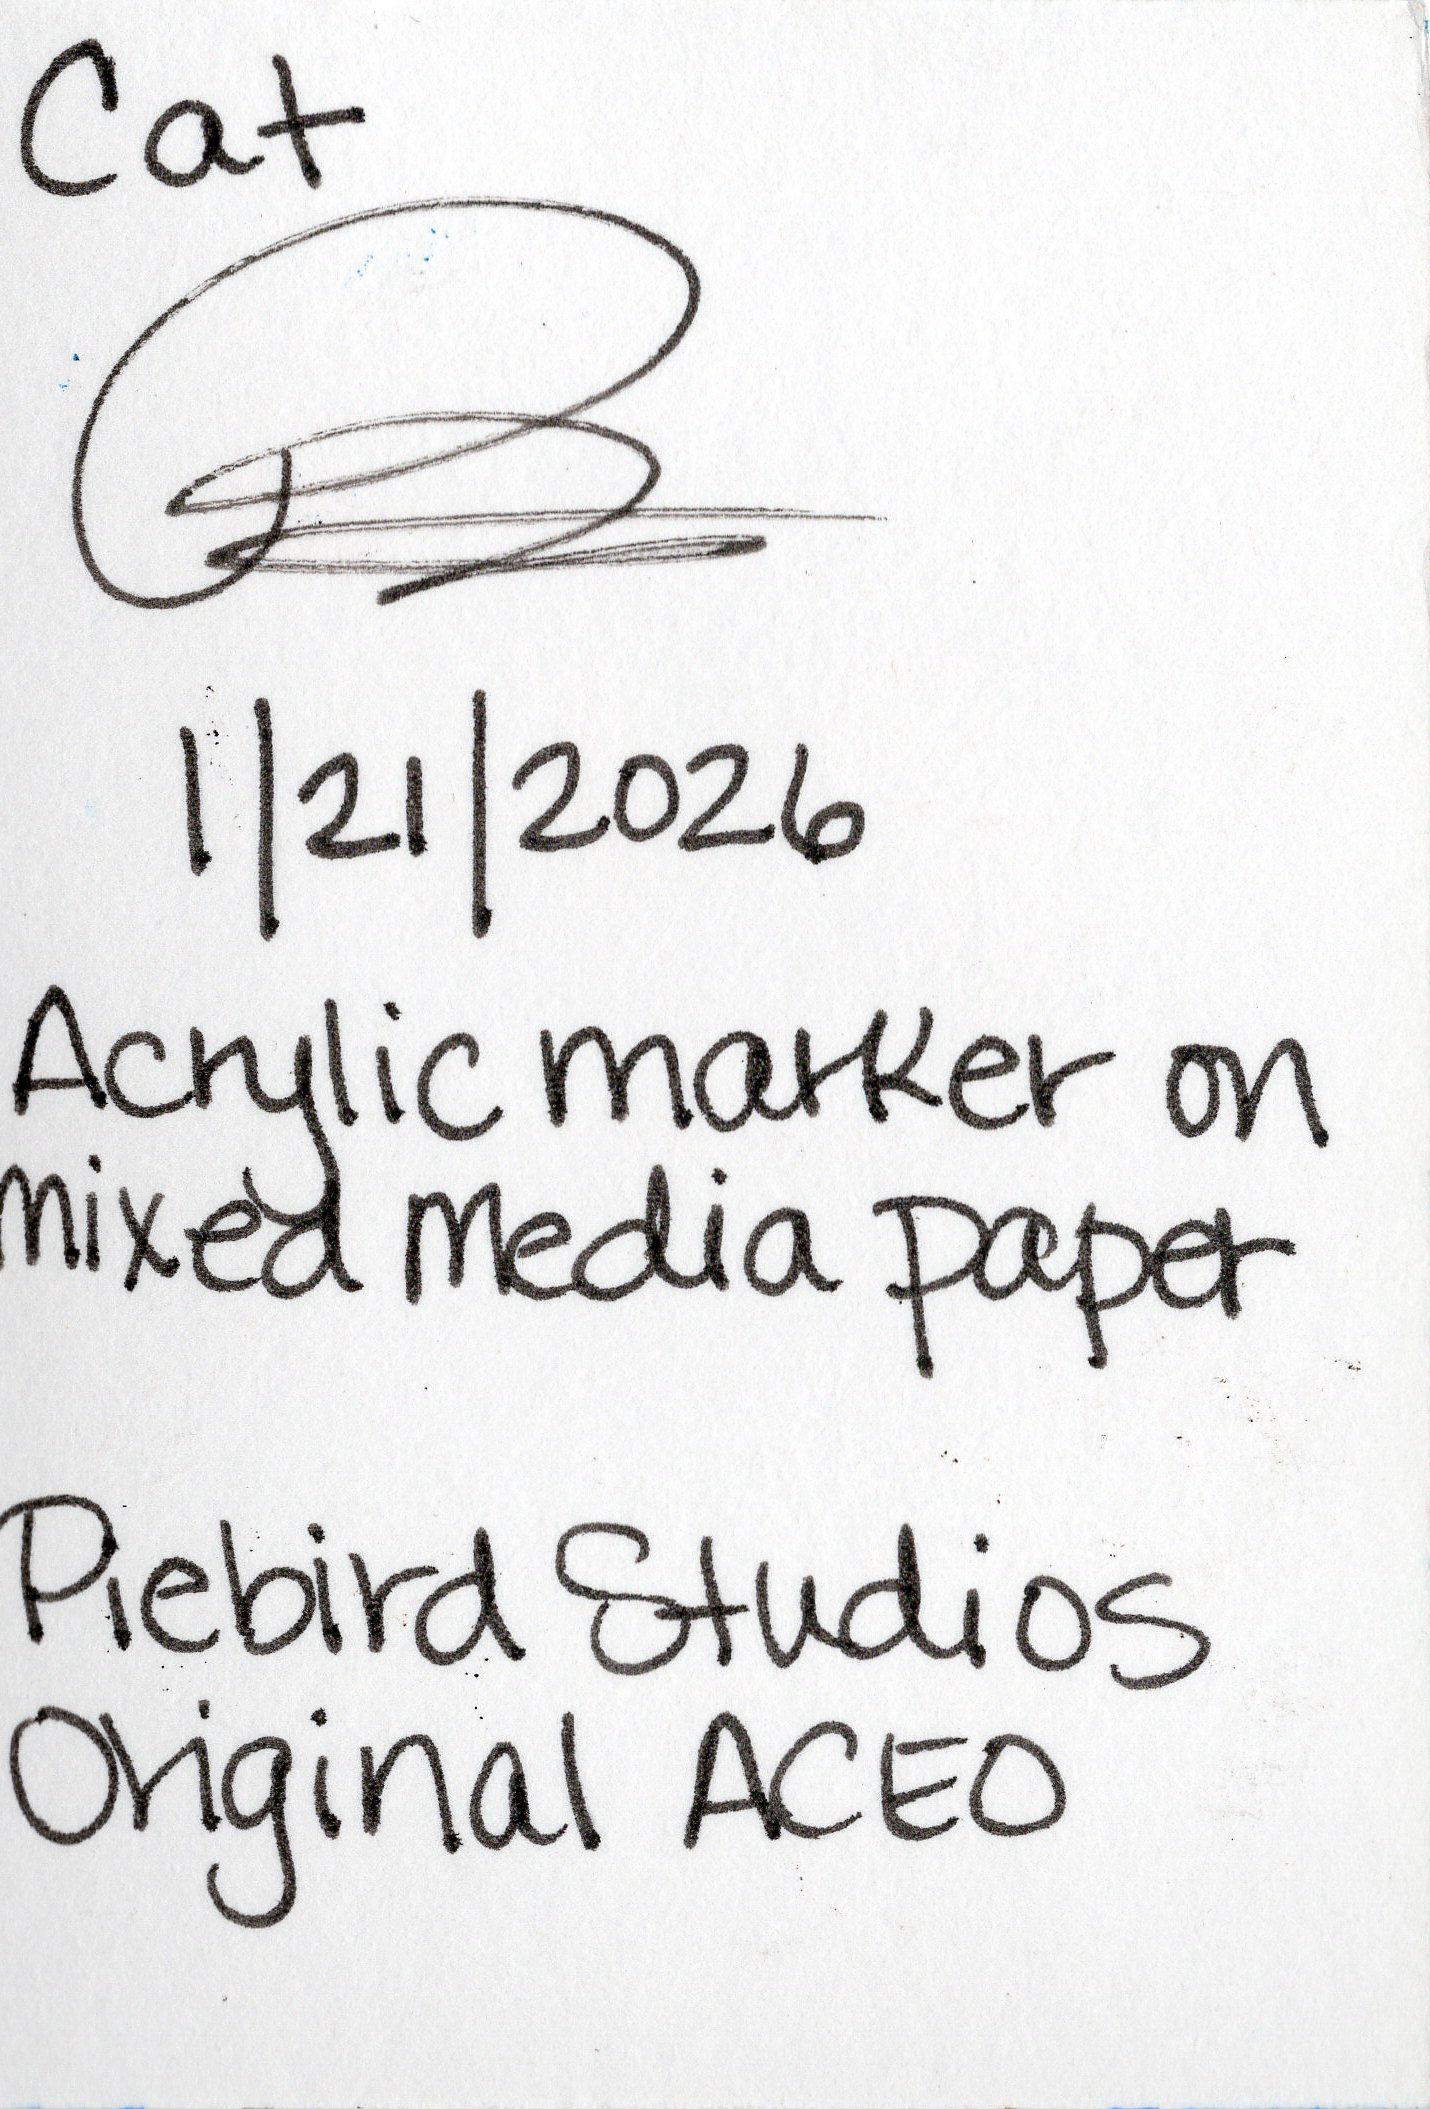 Cat
1/21/2026
Acrylic marker on
mixed media paper
Piebird Studios
Original ACEO